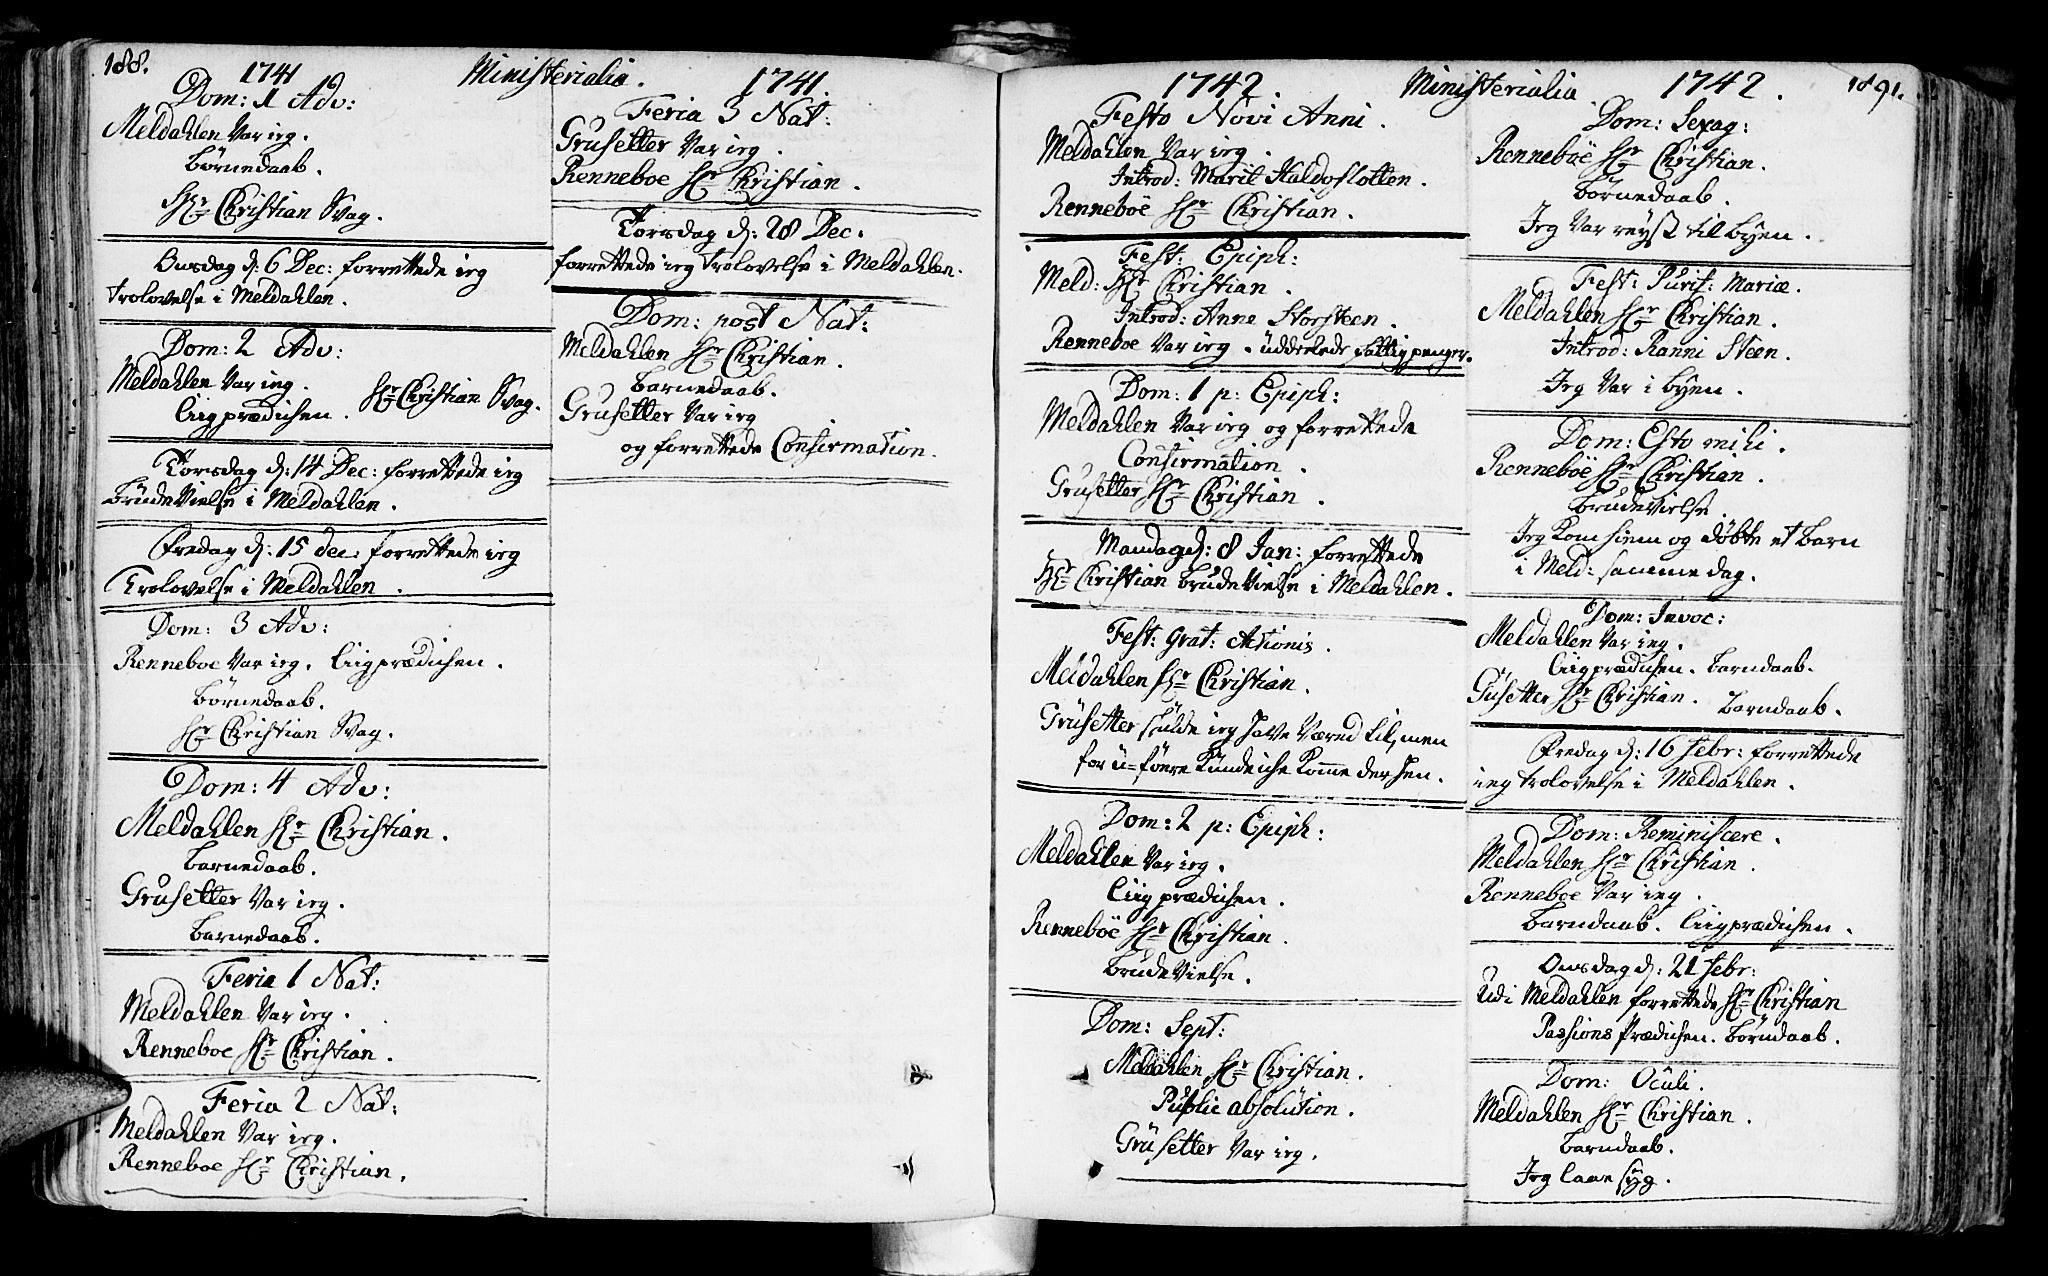 188.
1741 Ministerialia. 1741.
Dom: 1 Adv:
Meldahlen Var ieg.
Børnedaab.
Hr Christian Svag.
Onsdag d: 6 Dec: forrettede ieg
trolovelse i Meldahlen.
Dom: 2 Adv:
Meldahlen Var ieg.
Liigprædichen. Hr Christian Svag.
Torsdag d: 14 Dec: forrettede ieg
brudevielse i Meldahlen.
Fredag d: 15 dec: forrettede ieg
Trolovelse i Meldahlen.
Dom: 3 Adv:
Renneboe Var ieg. Liigprædichen.
børnedaab.
Hr Christian Svag.
Dom: 4 Adv:
Meldahlen Hr Christian.
barnedaab.
Grusetter Var ieg.
barnedaab.
Feria 1 Nat:
Meldahlen Var ieg.
Renneboe Hr Christian.
Feria 2 Nat:
Meldahlen Var ieg.
Renneboe Hr Christian.
Feria 3 Nat:
Grusetter Var ieg.
Renneboe Hr Christian.
Torsdag d: 28 Dec:
forrettede ieg trolovelse i Meldahlen.
Dom: post Nat:
Meldahlen Hr Christian.
barnedaab.
Grusetter Var ieg
og forrettede Confirmation.
1742. Ministerialia 1742. 189.
Festo Novi Anni.
Meldahlen Var ieg.
Introd: Marit Haldoslotten.
Renneböe Hr Christian.
Fest: Epiph:
Meld: Hr Christian.
Introd: Anne Storsteen.
Renneboe Var ieg. üddeelede fattigpenger.
Dom: 1 p: Epiph:
Meldahlen Var ieg og forrettede
Confirmation.
Grusetter Hr Christian.
Mandag d: 8 Jan: forrettede
Hr Christian brudevielse i Meldahlen.
Fest: Grat: Actionis.
Meldahlen Hr Christian.
Grüsetter skulde ieg have Været til, men
for u-föere Kunde iche Komme der hen.
Dom: 2 p: Epiph:
Meldahlen Var ieg.
Liigprædichen.
Renneböe Hr Christian.
brudevielse.
Dom: Sept:
Meldahlen Hr Christian.
Public absolution.
Grüsetter Var ieg.
Dom: Sexag:
Renneböe Hr Christian.
børnedaab.
Jeg Var reyst til byen.
Fest: Purif: Mariæ.
Meldahlen Hr Christian.
Introd: Ranni Steen.
Jeg Var i byen.
Dom: Esto mihi.
Renneböe Hr Christian.
brudevielse.
Jeg Kom hiem og døbte et barn
i Meld: samme dag.
Dom: Invoc:
Meldahlen Var ieg.
Liigprædichen. barndaab.
Güsetter Hr Christian. barndaab.
Fredag d: 16 Febr: forrettede
ieg trolovelse i Meldahlen.
Dom: Reminiscere.
Meldahlen Hr Christian.
Renneboe Var ieg.
barndaab. Liigprædichen.
Onsdag d: 21 Febr:
udi Meldahlen forrettede Hr Christian
Passions Prædichen. børndaab.
Dom: Oculi.
Meldahlen Hr Christian.
barndaab.
Jeg laae syg.